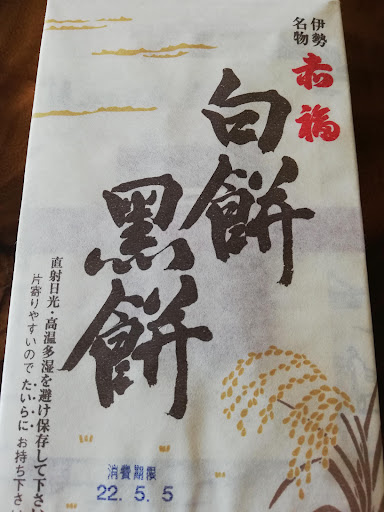 伊勢
名物
赤福
白餅
黑餅
直射日光・高温多湿を避け保存して下さい
片寄りやすいので たいらに お持ち下さい
消費期限
22.5.5